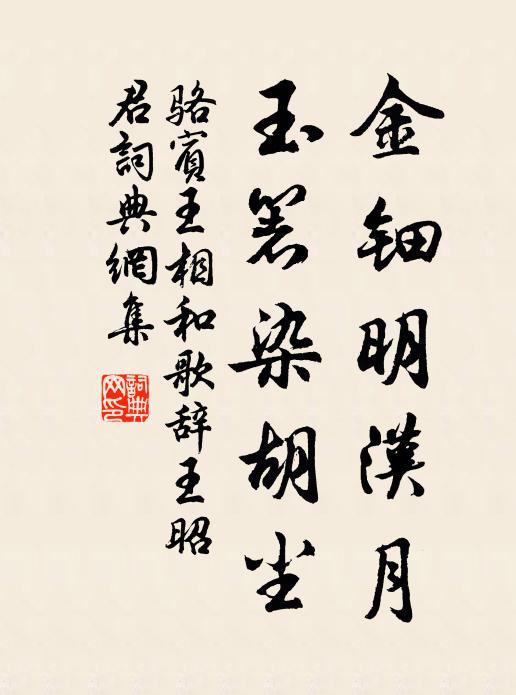 金鈿明漢月
玉箸染胡尘
駱賓王相和歌辞王昭
君詞典網集
詞典
网印